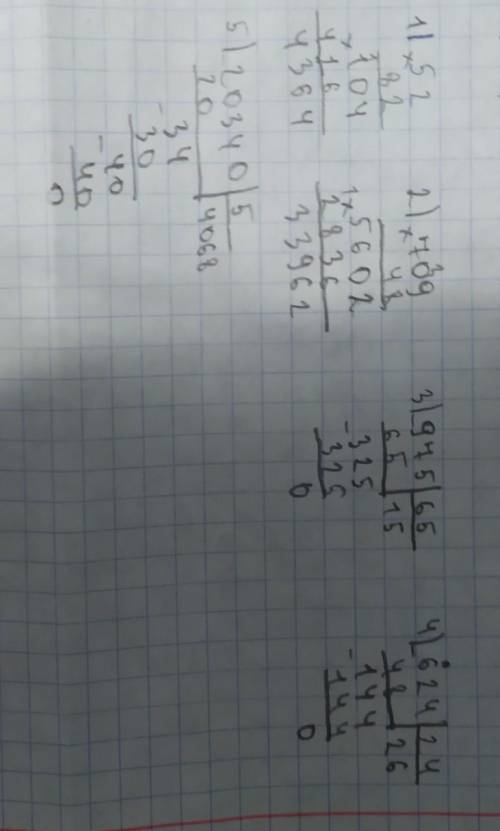 1) × 52
82
× 104
416
4364
2) × 709
48
× 5602
2836
33962
3) 975 | 65
65 | 15
- 325
325
0
4) 624 | 24
48 | 26
- 144
144
0
5) 20340 | 5
20 | 4068
- 34
30
- 40
40
0